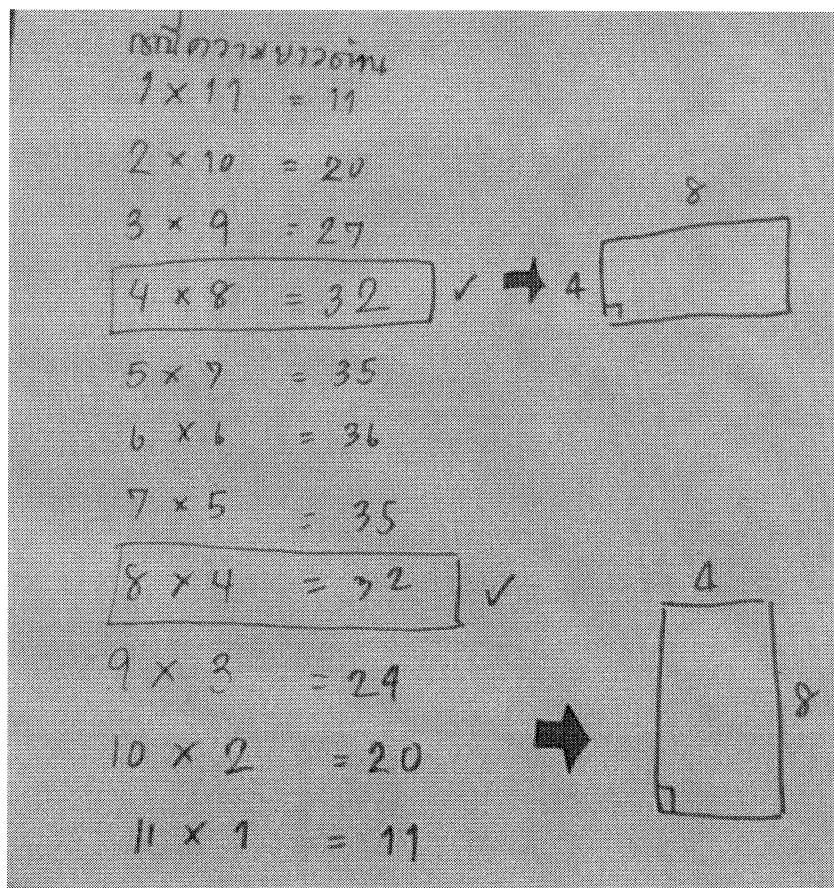 กรณีความยาวด้าน
1 × 11 = 11
2 × 10 = 20
3 × 9 = 27
4 × 8 = 32 ✓ 4 8
5 × 7 = 35
6 × 6 = 36
7 × 5 = 35
8 × 4 = 32 ✓ 4 8
9 × 3 = 29
10 × 2 = 20
11 × 1 = 11